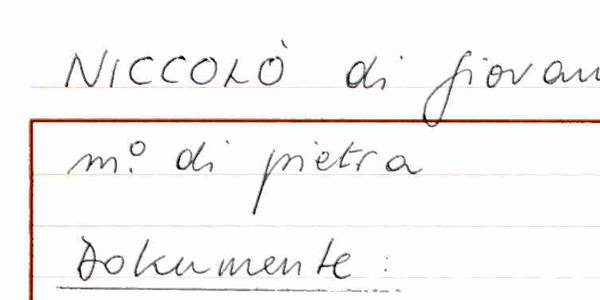 NICCOLÒ di Giovan
m.º di pietra
Dokumente: